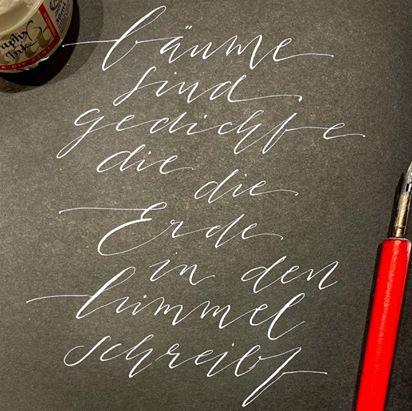 bäume
sind
gedichte
die die
Erde
in den
himmel
schreibt